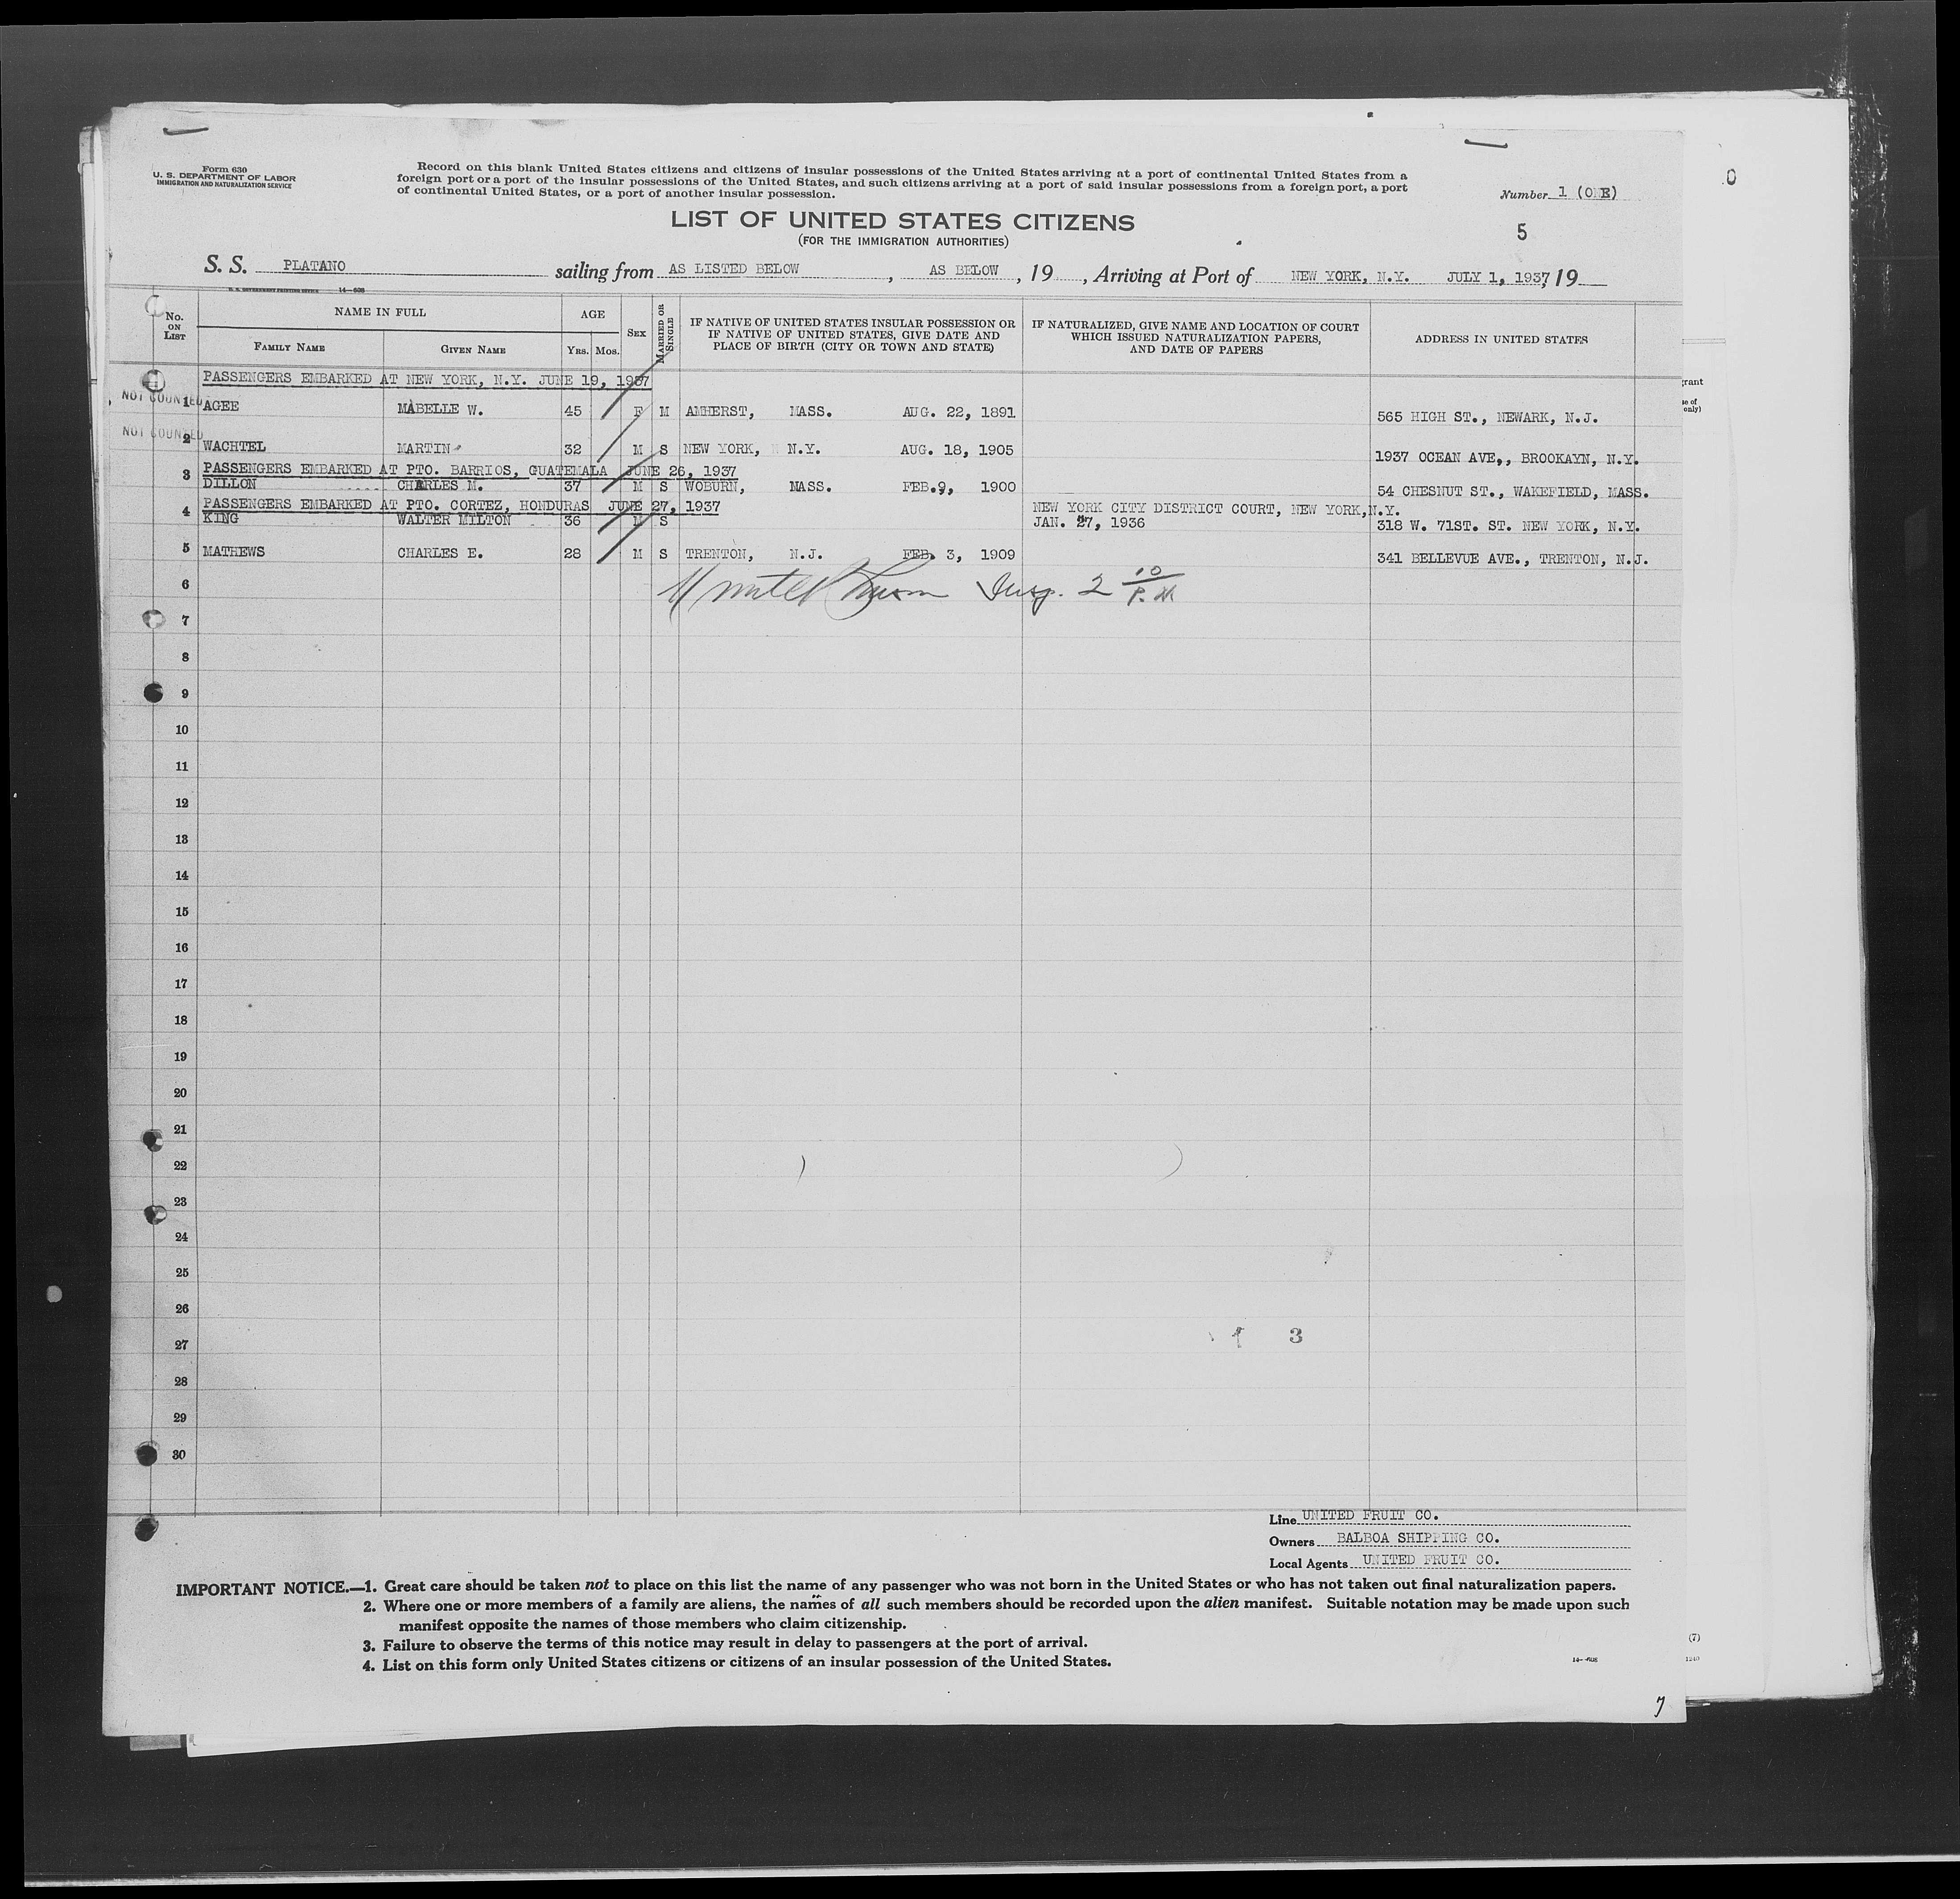 Form 630
U. S. DEPARTMENT OF LABOR
IMMIGRATION AND NATURALIZATION SERVICE
Record on this blank United States citizens and citizens of insular possessions of the United States arriving at a port of continental United States from a
foreign port or a port of the insular possessions of the United States, and such citizens arriving at a port of said insular possessions from a foreign port, a port
of continental United States, or a port of another insular possession.
Number 1 (ONE)
0
LIST OF UNITED STATES CITIZENS
(FOR THE IMMIGRATION AUTHORITIES)
5
S. S. PLATANO sailing from AS LISTED BELOW, AS BELOW, 19, Arriving at Port of NEW YORK, N.Y. JULY 1, 1937, 19
U. S. GOVERNMENT PRINTING OFFICE 14-608
No. ON LIST
NAME IN FULL
FAMILY NAME
GIVEN NAME
AGE
YRS. MOS.
SEX
MARRIED OR SINGLE
IF NATIVE OF UNITED STATES INSULAR POSSESSION OR
IF NATIVE OF UNITED STATES, GIVE DATE AND
PLACE OF BIRTH (CITY OR TOWN AND STATE)
IF NATURALIZED, GIVE NAME AND LOCATION OF COURT
WHICH ISSUED NATURALIZATION PAPERS,
AND DATE OF PAPERS
ADDRESS IN UNITED STATES
PASSENGERS EMBARKED AT NEW YORK, N.Y. JUNE 19, 1937
NOT COUNTED
1 AGEE MABELLE W. 45 F M AMHERST, MASS. AUG. 22, 1891 565 HIGH ST., NEWARK, N.J.
NOT COUNTED
2 WACHTEL MARTIN 32 M S NEW YORK, N.Y. AUG. 18, 1905 1937 OCEAN AVE,, BROOKAYN, N.Y.
PASSENGERS EMBARKED AT PTO. BARRIOS, GUATEMALA JUNE 26, 1937
3 DILLON CHARLES M. 37 M S WOBURN, MASS. FEB.9, 1900 54 CHESNUT ST., WAKEFIELD, MASS.
PASSENGERS EMBARKED AT PTO. CORTEZ, HONDURAS JUNE 27, 1937
4 KING WALTER MILTON 36 M S NEW YORK CITY DISTRICT COURT, NEW YORK,N.Y.
JAN. 27, 1936 318 W. 71ST. ST. NEW YORK, N.Y.
5 MATHEWS CHARLES E. 28 M S TRENTON, N.J. FEB. 3, 1909 341 BELLEVUE AVE., TRENTON, N.J.
Insp. 2 10 P. M.
6
7
8
9
10
11
12
13
14
15
16
17
18
19
20
21
22
23
24
25
26
27
3
28
29
30
Line UNITED FRUIT CO.
Owners BALBOA SHIPPING CO.
Local Agents UNITED FRUIT CO.
IMPORTANT NOTICE.—1. Great care should be taken not to place on this list the name of any passenger who was not born in the United States or who has not taken out final naturalization papers.
2. Where one or more members of a family are aliens, the names of all such members should be recorded upon the alien manifest. Suitable notation may be made upon such
manifest opposite the names of those members who claim citizenship.
3. Failure to observe the terms of this notice may result in delay to passengers at the port of arrival.
4. List on this form only United States citizens or citizens of an insular possession of the United States.
14-608
(7)
7